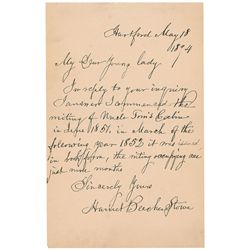 Hartford May 18
18 4
My Dear Young lady
In reply to your inquiry
I answer I commenced the
writing of Uncle Tom's Cabin
in June 1851, in March of the
following year 1852 it was issued
in book form, the writing occupying me
just nine months
Sincerely Yours
Harriet Beecher Stowe